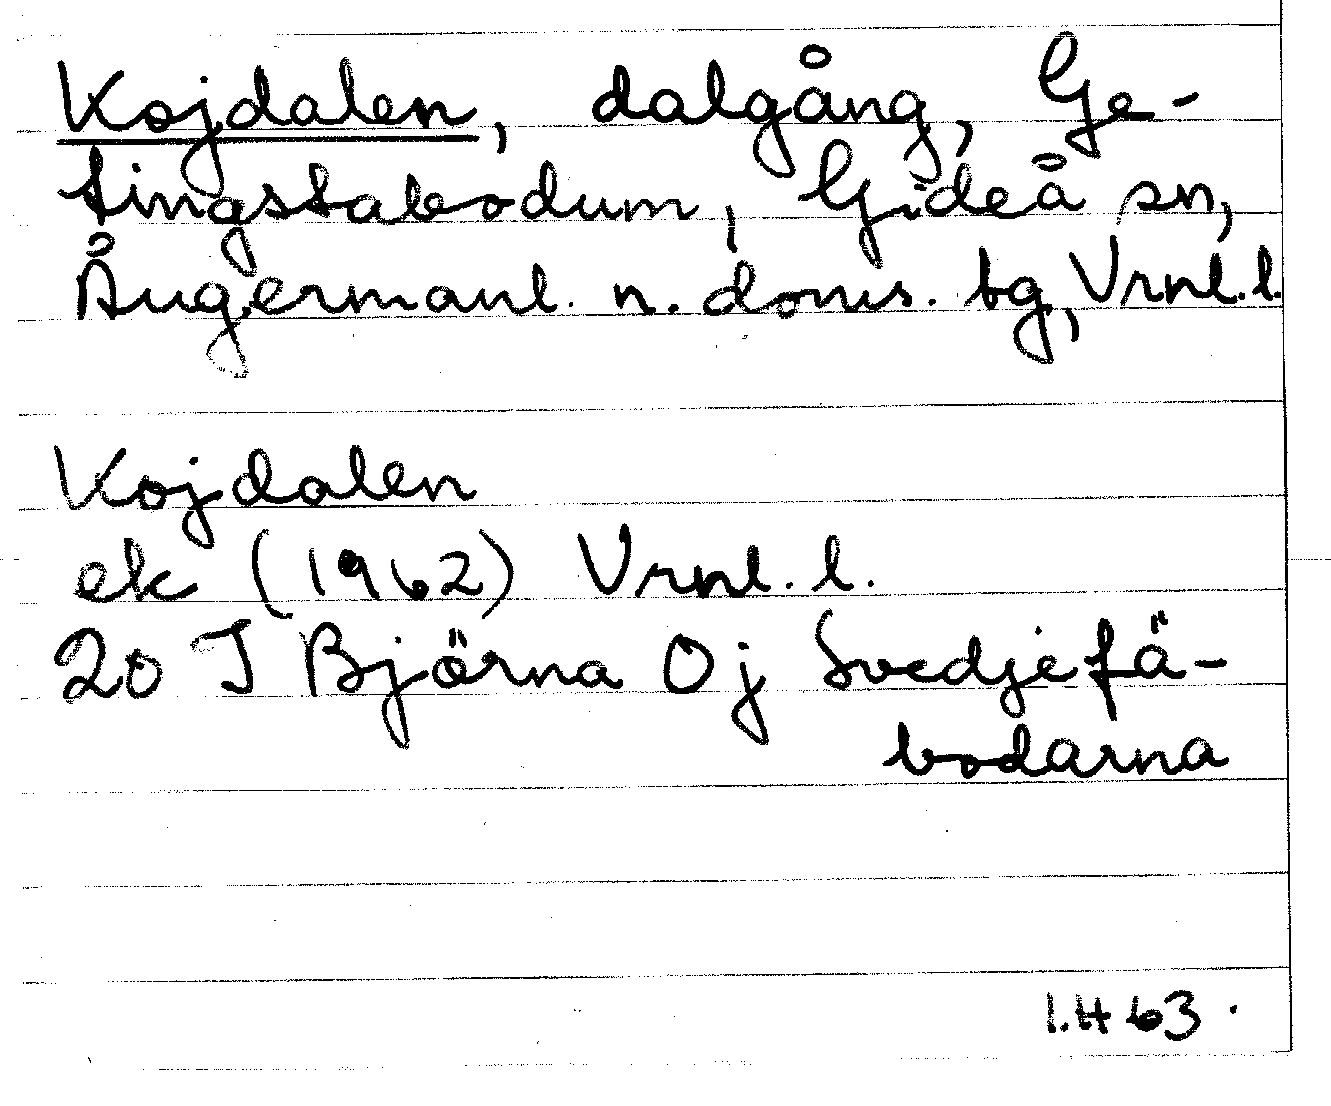 Kojdalen, dalgång, Ge-
tingstabodum, Gideå sn,
Ångermanl. n. doms. tg, Vrnl.l.
Kojdalen
ek (1962) Vrnl. l.
20 J Björna Oj Svedjefä-
bodarna
I.H 63.